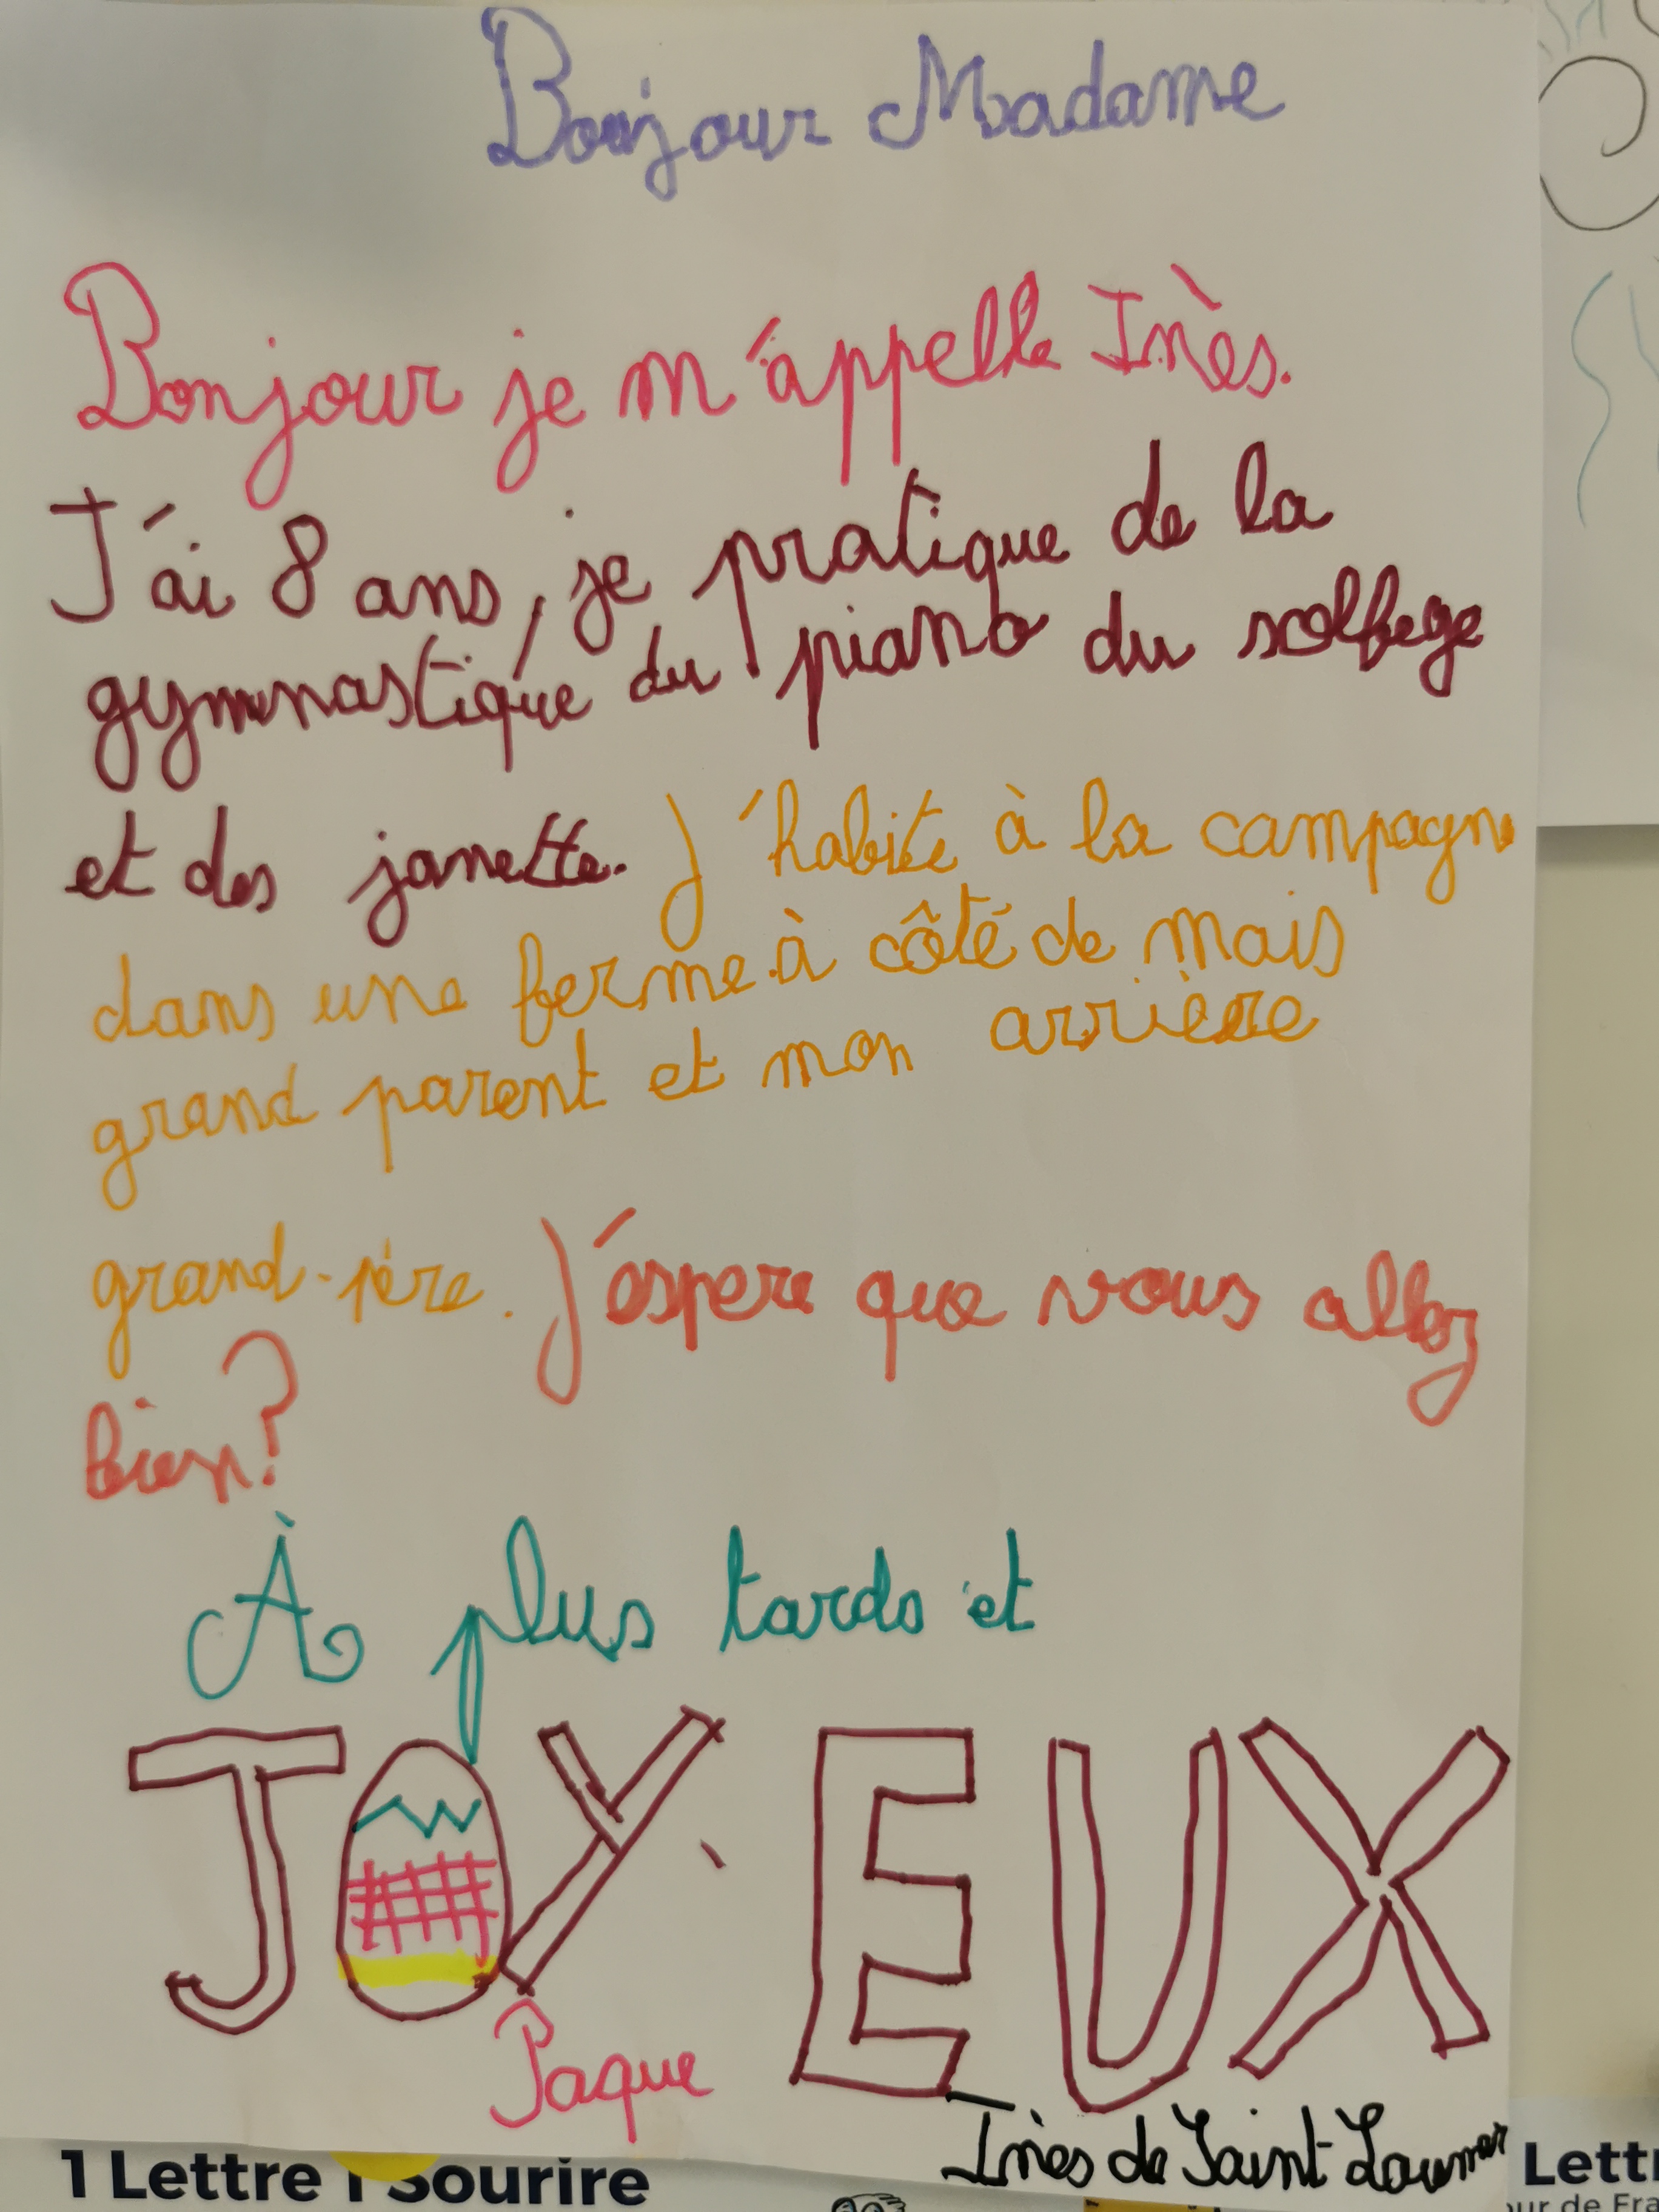 Bonjour Madame
Bonjour je m'appelle Inès.
J'ai 8 ans, je pratique de la
gymnastique du piano du solfege
et des janette. J'habite à la campagn
dans une ferme à côté de mais
grand parent et mon arrière
grand-père. J'éspere que vous allez
bien?
À plus tards et
JOYEUX
Paque
Inès de Saint
1 Lettre 1 Sourire
Lett
ur de Fra